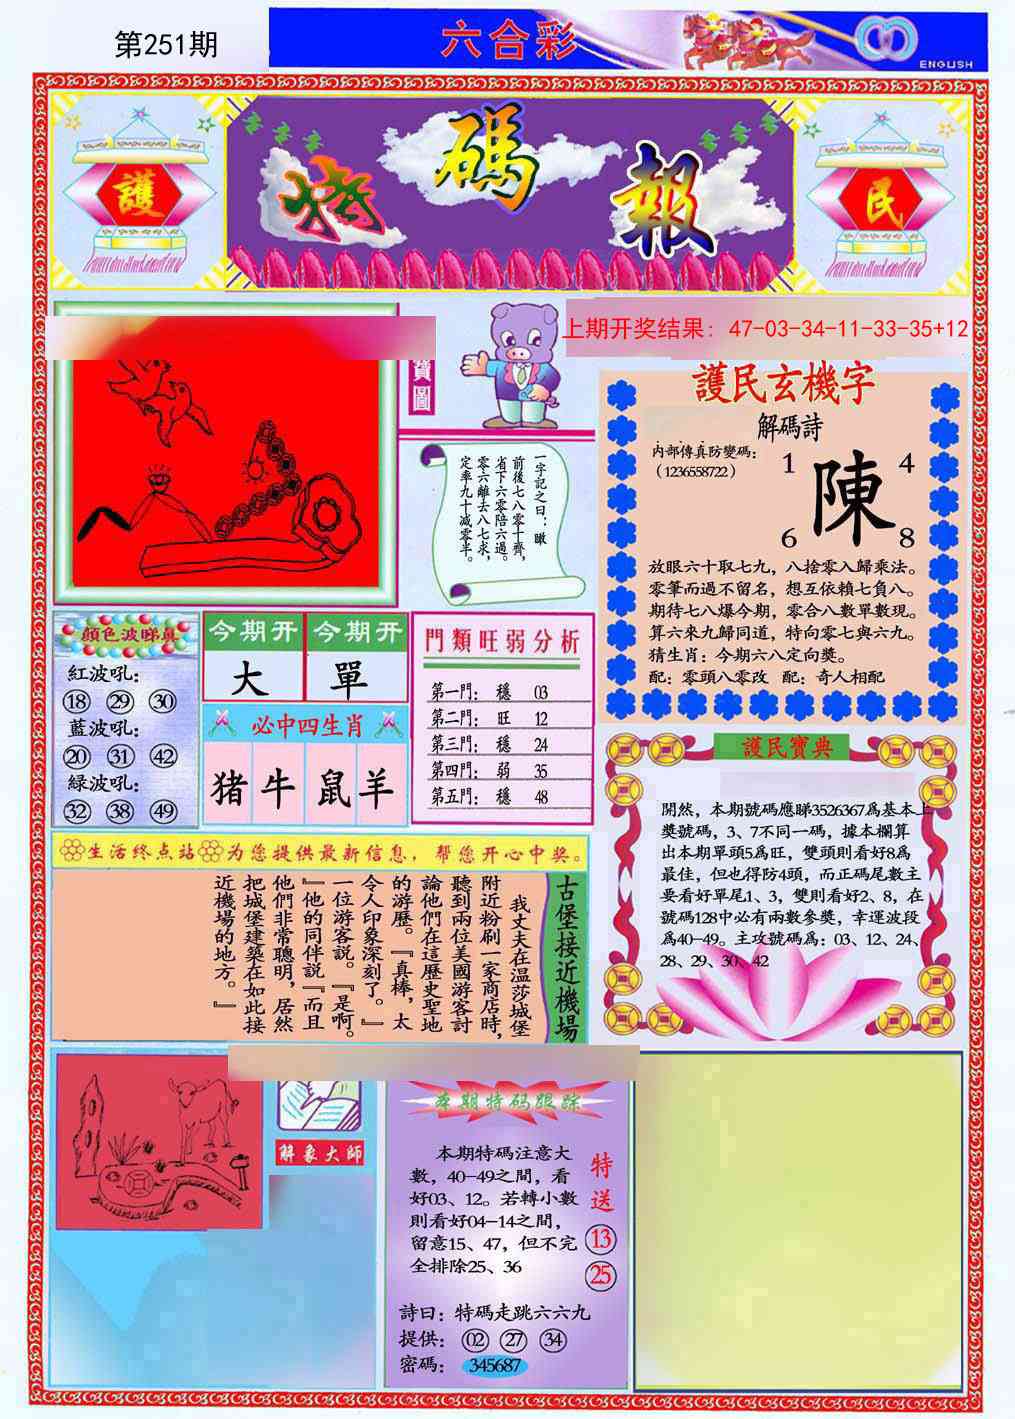 第251期
六合彩
ENGLISH
護
特碼報
民
上期开奖结果：47-03-34-11-33-35+12
寶圖
一字記之曰：瞰
前後七八零十齊，
省下六零陪六過。
零六離去八七求，
定率九十減零半。
護民玄機字
解碼詩
内部傳真防變碼：
（1236558722）
1 4
陳
6 8
放眼六十取七九，八捨零入歸乘法。
零筆而過不留名，想互依賴七負八。
期待七八爆今期，零合八數單數現。
算六來九歸同道，特向零七與六九。
猜生肖：今期六八定向獎。
配：零頭八零改 配：奇人相配
顏色波睇真
紅波吼：
18 29 30
藍波吼：
20 31 42
綠波吼：
32 38 49
今期开 今期开
大 單
必中四生肖
猪 牛 鼠 羊
門類旺弱分析
第一門： 穩 03
第二門： 旺 12
第三門： 穩 24
第四門： 弱 35
第五門： 穩 48
護民寶典
開然，本期號碼應睇3526367爲基本上
獎號碼，3、7不同一碼，據本欄算
出本期單頭5爲旺，雙頭則看好8爲
最佳，但也得防4頭，而正碼尾數主
要看好單尾1、3，雙則看好2、8，在
號碼128中必有兩數參獎，幸運波段
爲40—49。主攻號碼爲：03、12、24、
28、29、30、42
生活终点站 为您提供最新信息，帮您开心中奖。
古堡接近機場
我丈夫在温莎城堡
附近粉刷一家商店時，
聽到兩位美國游客討
論他們在這歷史聖地
的游歷。『真棒，太
令人印象深刻了。』
一位游客説。『是啊。
『他的同伴説『而且
他們非常聰明，居然
把城堡建築在如此接
近機場的地方。』
解象大師
本期特码跟踪
本期特码注意大
數，40—49之間，看
好03、12。若轉小數
則看好04—14之間，
留意15、47，但不完
全排除25、36
特送
13
25
詩曰：特碼走跳六六九
提供： 02 27 34
密碼： 345687